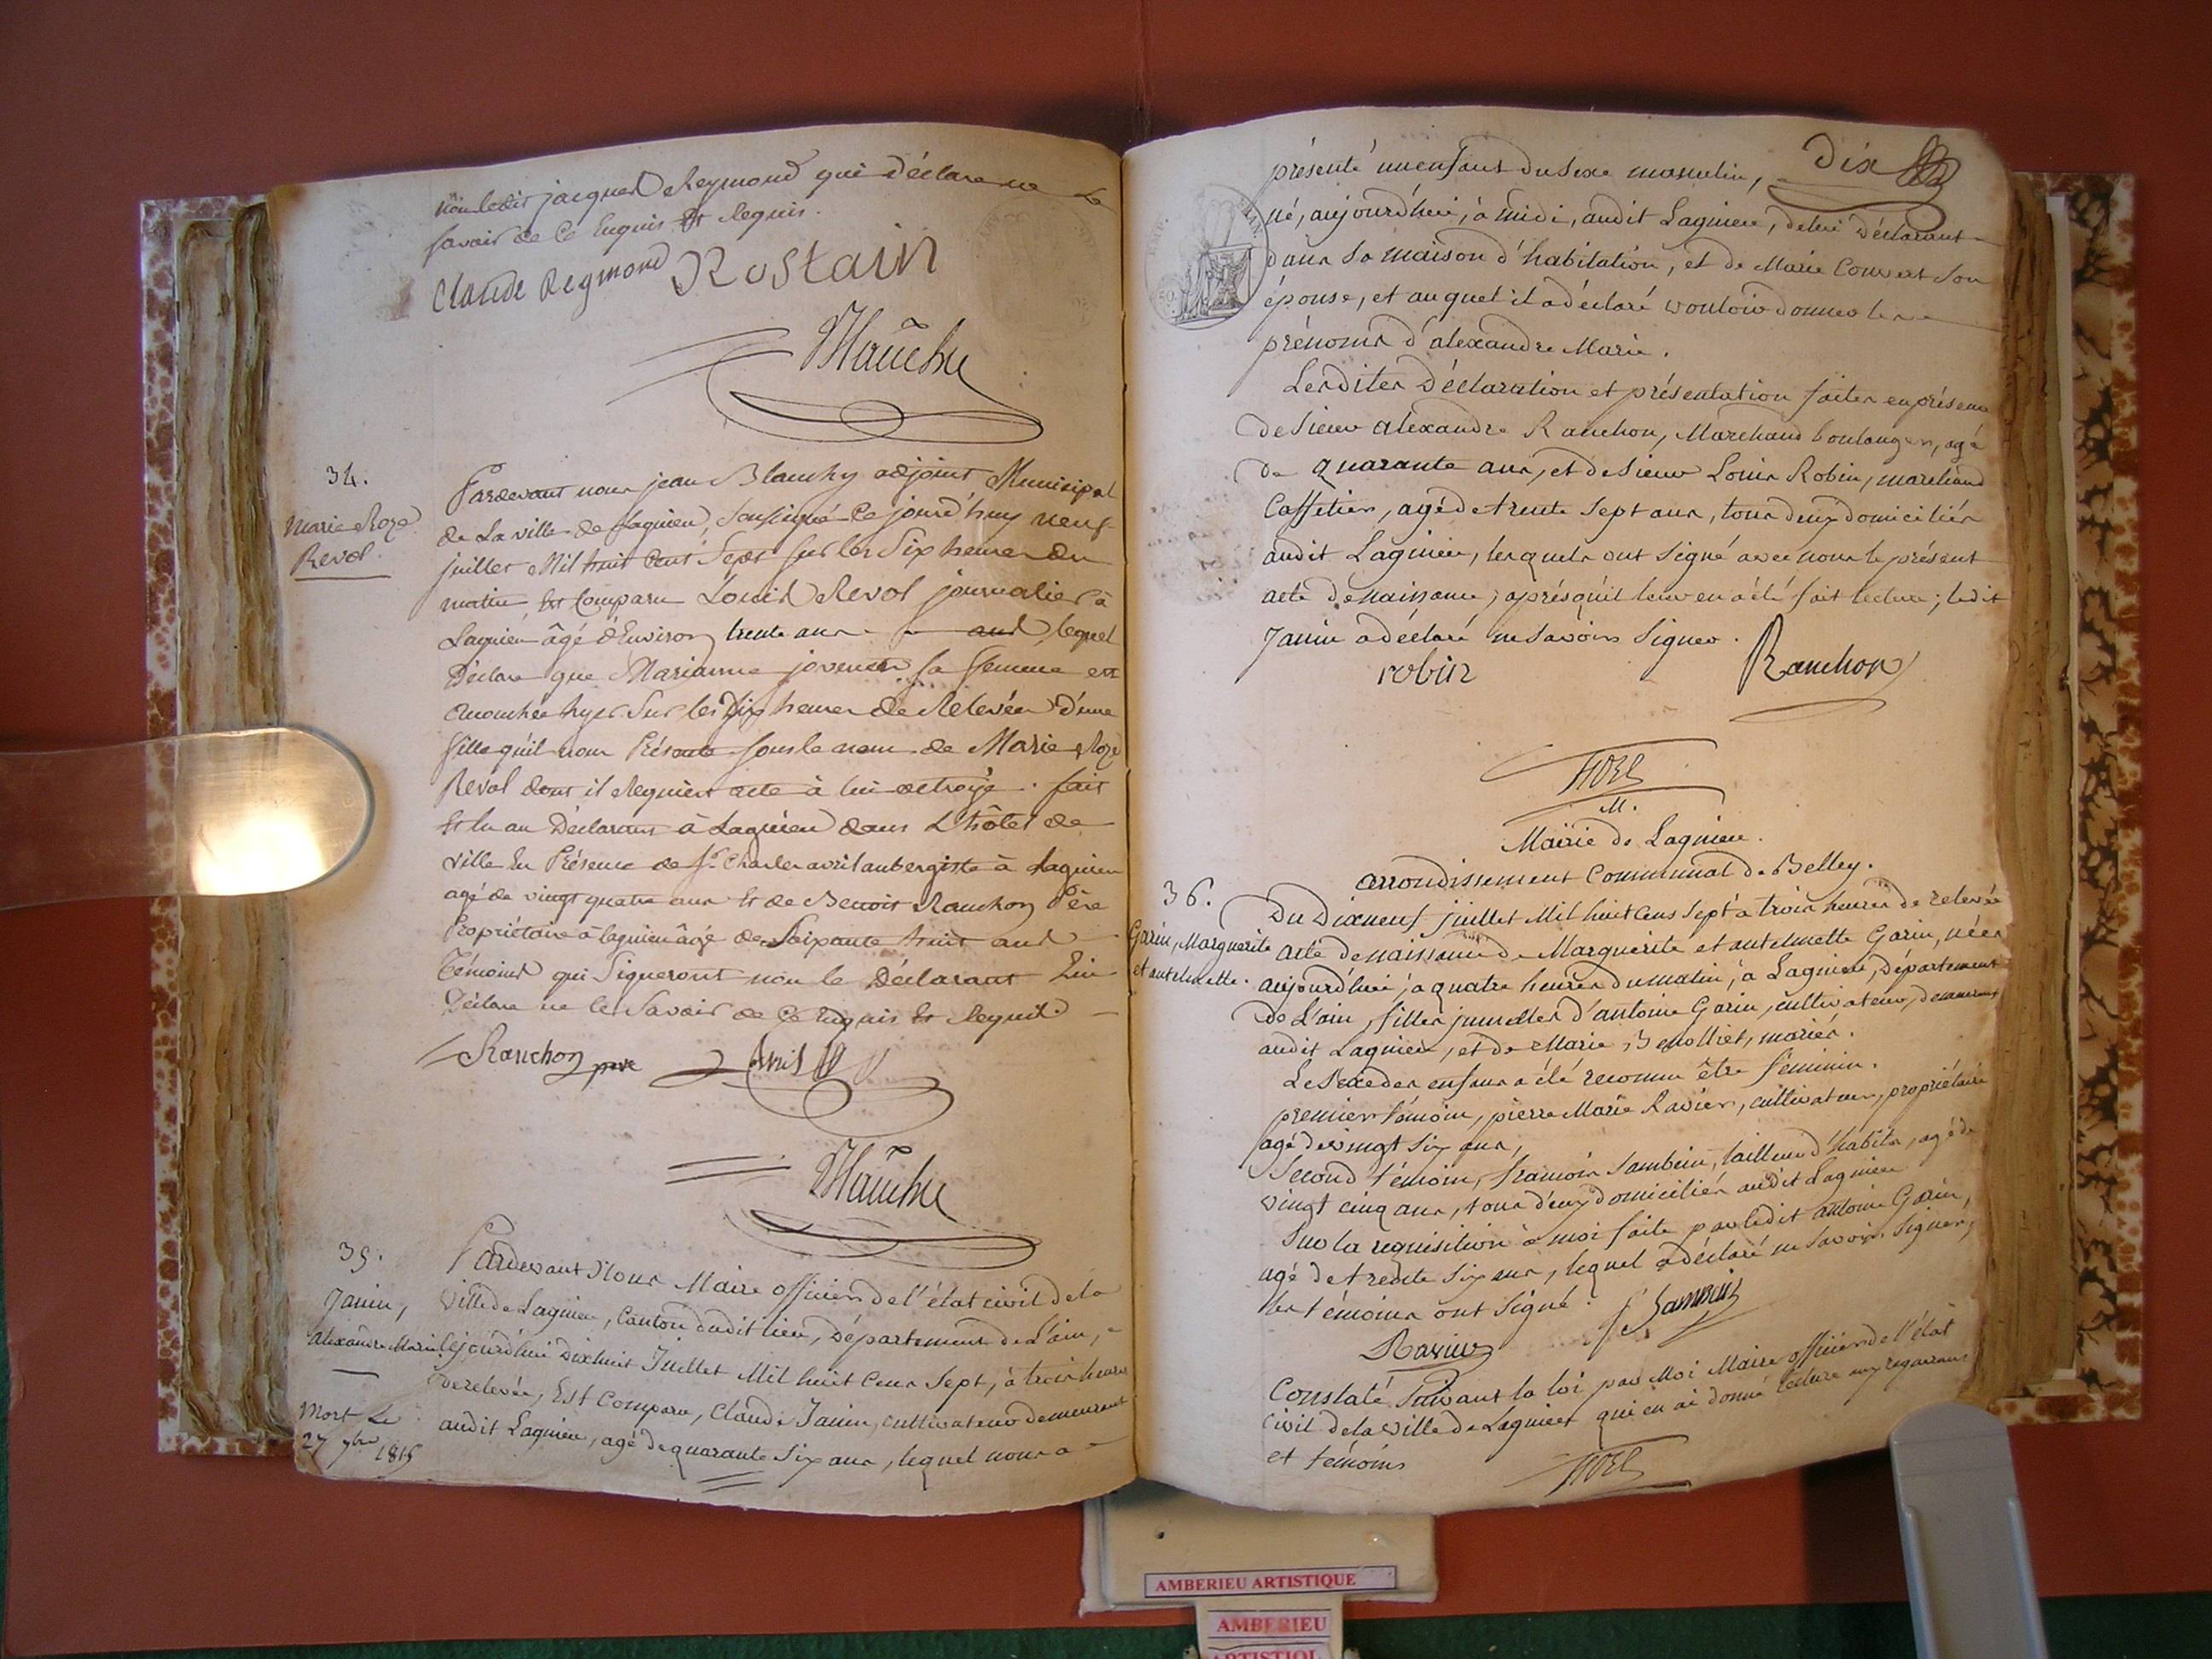 non ledit jacques Reymond qui déclare ne le
savoir de ce Enquis et Requis.
Claude Regmond Rostain
Blanchy
34.
Marie Roze
Revol.
Pardevant nous jean Blanchy adjoint Municipal
de La ville de Lagnieu, Soussigné Ce jourd'huy neuf
juillet Mil huit Cent Sept sur les Six heures du
matin Est Comparu Louis Revol journalier à
Lagnieu âgé d'Environ trente ans ans, lequel
Déclare que Marianne sa femme est
accouchée hyer Sur les Six heures de Relevée d'une
fille qu'il nous Présente sous le nom de Marie Roze
Revol dont il Requiert acte à lui octroyé. fait
Et lu au Déclarant à Lagnieu dans L'hôtel de
ville En Présence de Sr. Charles avril aubergiste à Lagnieu
agé de vingt quatre ans Et de Benoit Ranchon Père
Propriétaire à lagnieu âgé de Soixante huit ans
Témoins qui Signeront non le Déclarant Qui
Déclare ne le Savoir de Ce Enquis Et Requis.
Ranchon pere Avril
Blanchy
35.
Janin,
alexandre Marie
Mort Le
27 7bre 1815
Pardevant Nous Maire officier de l'état civil de la
ville de Lagnieu, Canton dudit lieu, Département de L'ain,
Cejourd'hui Dixhuit Juillet Mil huit Cens Sept, à trois heures
de relevée, Est Comparu, Claude Janin, cultivateur demeurant
audit Lagnieu, agé de quarante Six ans, lequel nous a
Dix
présenté un enfant du Sexe masculin,
né, aujourd'hui, à midi, audit Lagnieu, de lui Déclarant
dans sa maison d'habitation, et de Marie Convert Son
épouse, et auquel il a déclaré vouloir donner les
prénoms d'alexandre Marie.
Lesdites Déclaration et présentation faites en présence
de Sieur alexandre Ranchon, Marchand boulanger, agé
de quarante ans, et de Sieur Louis Robin, marchand
Caffetier, agé de trente Sept ans, tous deux domiciliés
audit Lagnieu, lesquels ont Signé avec nous le présent
acte de naissance, après qu'il leur en a été fait lecture; ledit
Janin a déclaré ne Savoir Signer.
robin Ranchon
M.
Mairie de Lagnieu.
arrondissement Communal de Belley.
36.
Garin, Marguerite
et antelmette.
Du Dixneuf juillet Mil huit Cens Sept à trois heures de relevée
acte de naissance de Marguerite et antelmette Garin, nées
aujourd'hui, à quatre heures du matin, à Lagnieu, Département
de L'ain, filles jumelles d'antoine Garin, cultivateur, demeurant
audit Lagnieu, et de Marie, mariés.
Le Sexe des enfans a été reconnu être féminin.
premier témoin, pierre Marie Ravier, cultivateur, propriétaire
agé de vingt Six ans,
Second témoin, françois Sambein, tailleur d'habits, agé de
vingt cinq ans, tous deux domiciliés audit Lagnieu
Sur la requisition à moi faite par ledit antoine Garin,
agé de trente Six ans, lequel a déclaré ne Savoir Signer,
les témoins ont Signé.
Ravier
Constaté Suivant la loi par Moi Maire officier de l'état
civil de la ville de Lagnieu qui en ai donné lecture aux requerans
et témoins
AMBERIEU ARTISTIQUE
AMBERIEU